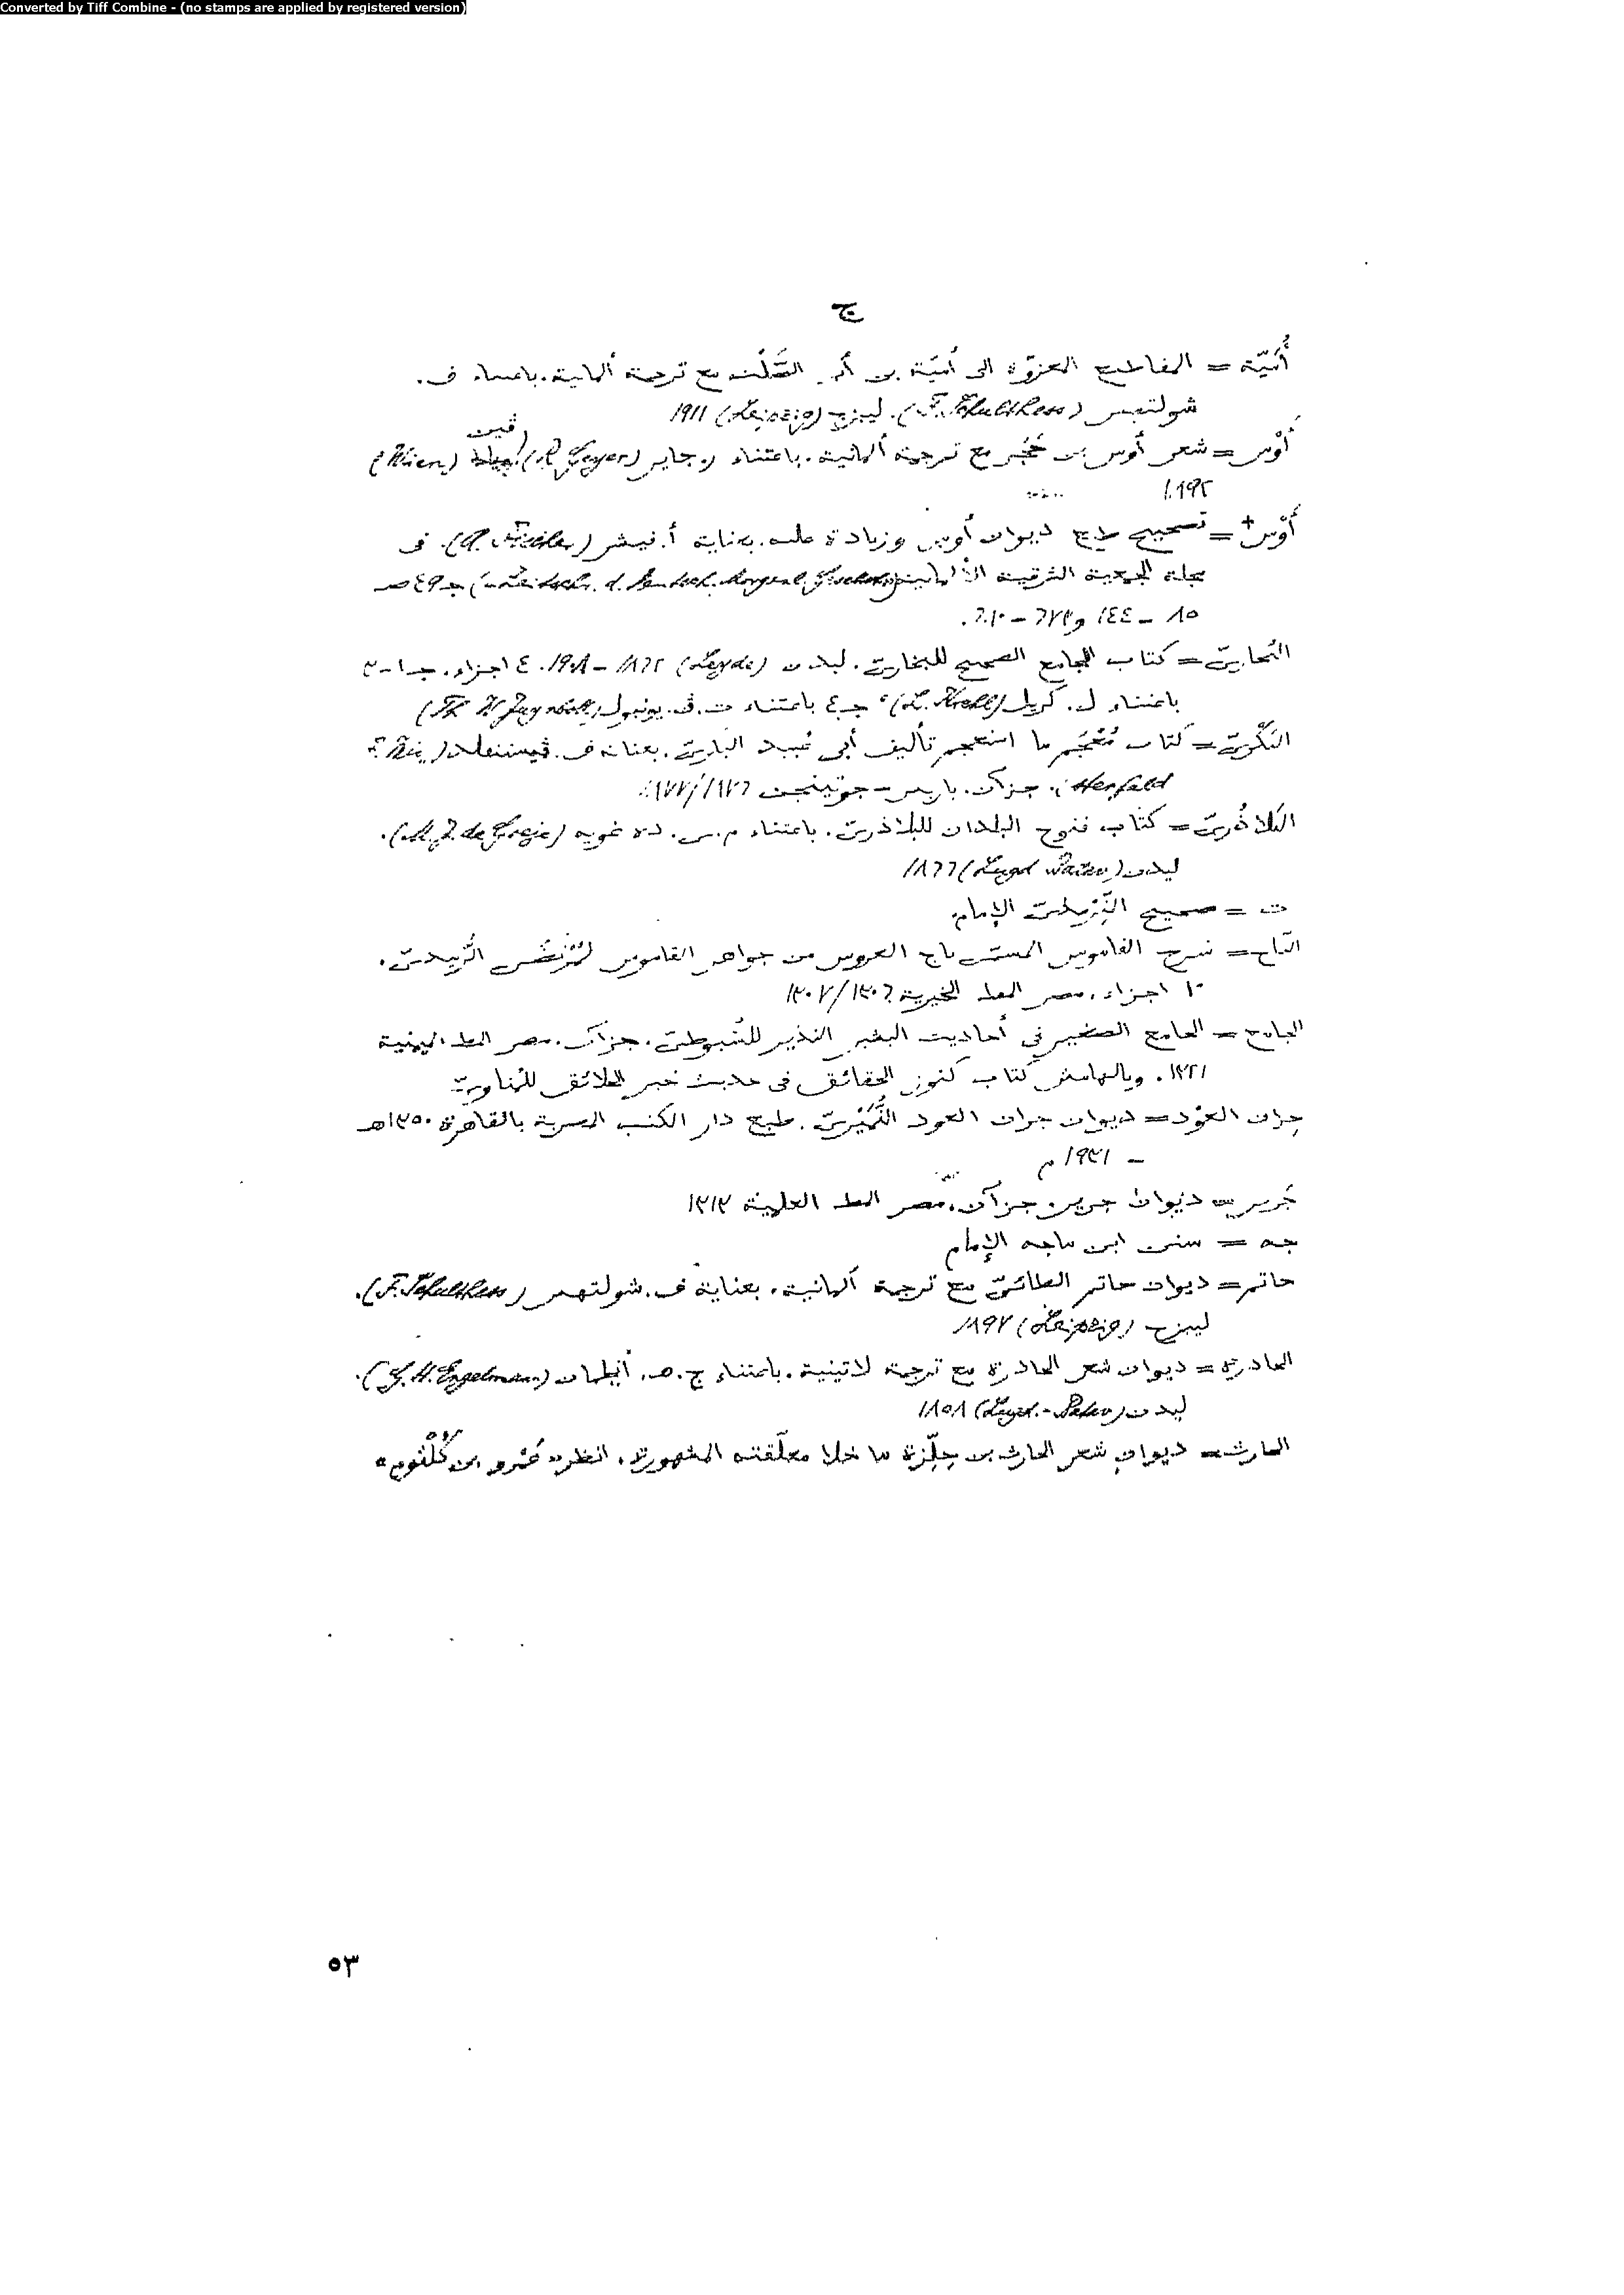 Converted by Tiff Combine - (no stamps are applied by registered version)
ج
أُمَيّة = المقاطيع المعزوّة الى أميّة بن أبى الصَّلْت مع ترجمة ألمانية. باعتناء ف.
شولتهس (F. Schulthess). ليبزج (Leipzig) ١٩١١
أوْس = شعر أوس بن حَجَر مع ترجمة ألمانية. باعتناء ر. جاير (R. Geyer) ڤين (Wien)
١٨٩٢
أوْس+ = تصحيح طبع ديوان أوس وزيادة عليه. بعناية أ. فيشر (A. Fischer). فى
مجلة الجمعية الشرقية الألمانية ج ٤٩ صـ
٨٥ – ١٤٤ و ٦٧٣ – ٦١٠.
البُخاريّ = كتاب الجامع الصحيح للبخاريّ. ليدن (Leyde) ١٨٦٢ – ١٩٠٨. ٤ اجزاء. جـ ١ – ٣
باعتناء ل. كريل (L. Krehl)، جـ ٤ باعتناء ت. و. يونبول (Th. W. Juynboll)
البَكْريّ = كتاب مُعْجَم ما استعجم تأليف أبى عُبيد البكريّ. بعناية ف. ڤيستنفلد
جزآن. باريس – جوتينجن ١٨٧٦/١٨٧٧
البَلاذُريّ = كتاب فتوح البلدان للبلاذريّ. باعتناء م. ى. ده غويه (M. J. de Goeje).
ليدن ١٨٦٦
ت = صحيح التِّرْمِذيّ الإمام
التاج = شرح القاموس المسمّى تاج العروس من جواهر القاموس لمُرْتَضَى الزَّبيديّ.
١٠ اجزاء. مصر المط الخيرية ١٣٠٦/١٣٠٧
الجامع = الجامع الصغير في أحاديث البشير النذير للسُّيوطىّ. جزآن. مصر المط الميمنية
١٣٢١. وبالهامش كتاب كنوز الحقائق فى حديث خير الخلائق للمُناويّ
جِران العَوْد = ديوان جران العود النُّمَيْريّ. طبع دار الكتب المصرية بالقاهرة ١٣٥٠ هـ
– ١٩٣١ م
جَرير = ديوان جرير. جزآن. مصر المط العلمية ١٣١٣
جه = سنن ابن ماجه الإمام
حاتم = ديوان حاتم الطائيّ مع ترجمة ألمانية. بعناية ف. شولتهس (F. Schulthess).
ليبزج (Leipzig) ١٨٩٧
الحادرة = ديوان شعر الحادرة مع ترجمة لاتينية. باعتناء ج. هـ. أنجلمان (G. H. Engelmann).
ليدن ١٨٥٨
الحارث = ديوان شعر الحارث بن حِلِّزة ما خلا معلّقته المشهورة. انظر «عَمْرو بن كُلْثوم»
٥٣